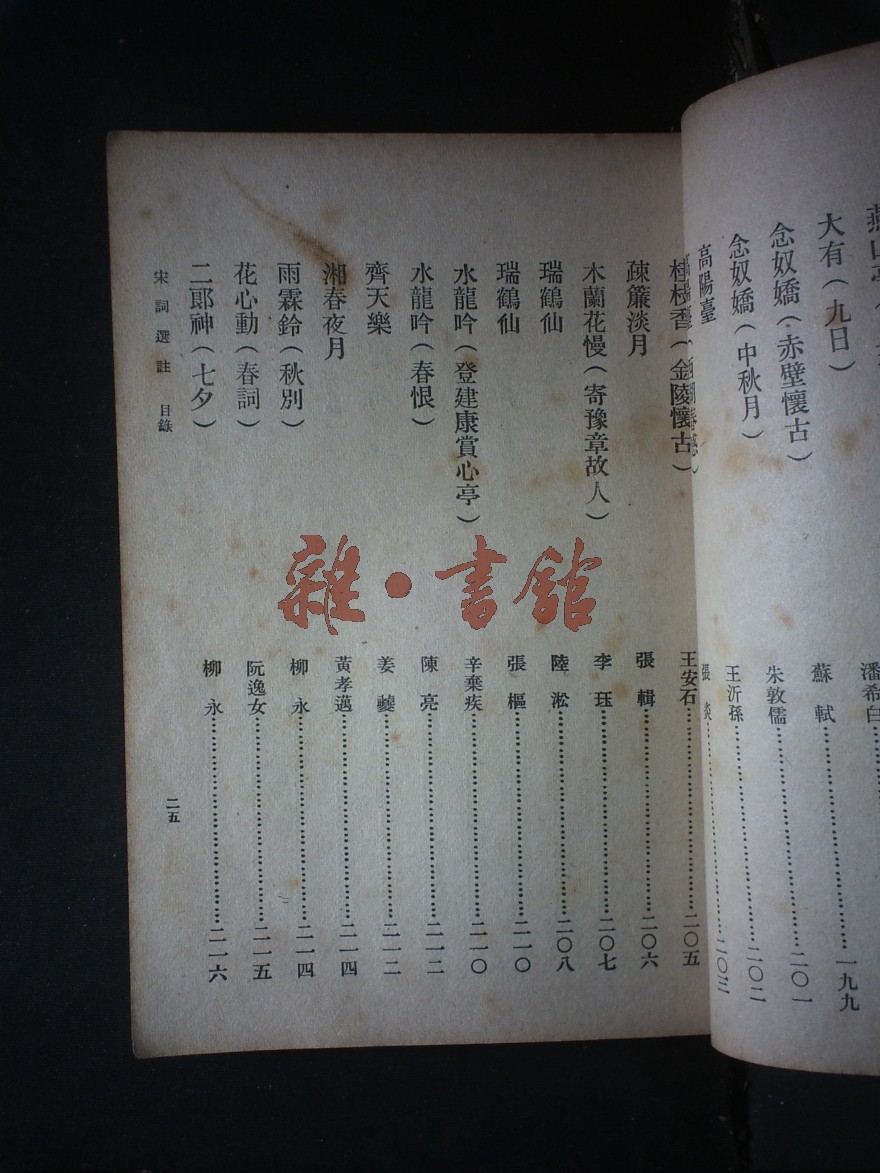 大有（九日）　潘希白
念奴嬌（赤壁懷古）　蘇　軾……一九九
念奴嬌（中秋月）　朱敦儒……二〇一
高陽臺　王沂孫……二〇二
張　炎……二〇三
桂枝香（金陵懷古）　王安石……二〇五
疎簾淡月　張　輯……二〇六
木蘭花慢（寄豫章故人）　李　珏……二〇七
瑞鶴仙　陸　淞……二〇八
瑞鶴仙　張　樞……二一〇
水龍吟（登建康賞心亭）　辛棄疾……二一〇
水龍吟（春恨）　陳　亮……二一二
齊天樂　姜　夔……二一二
湘春夜月　黃孝邁……二一四
雨霖鈴（秋別）　柳　永……二一四
花心動（春詞）　阮逸女……二一五
二郎神（七夕）　柳　永……二一六
宋詞選註　目錄
二五
雜・書館